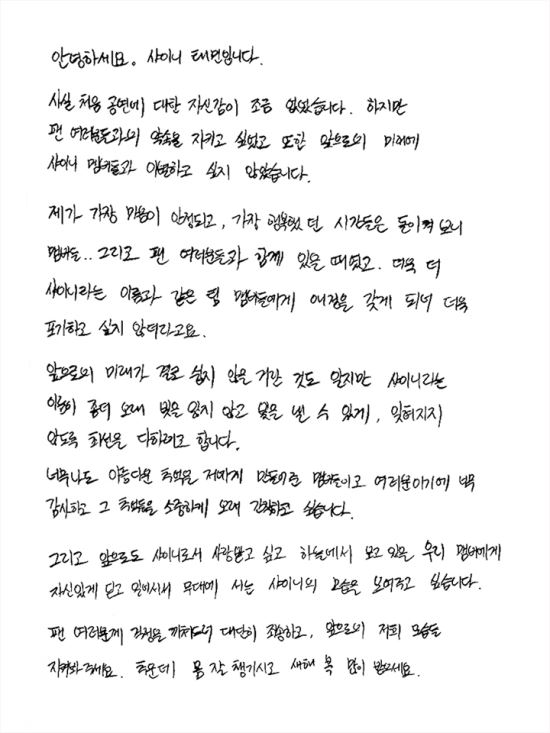 안녕하세요. 샤이니 태민입니다.
사실 처음 공연에 대한 자신감이 조금 없었습니다. 하지만
팬 여러분들과의 약속을 지키고 싶었고 또한 앞으로의 미래에
샤이니 멤버들과 이별하고 싶지 않았습니다.
제가 가장 마음이 안정되고, 가장 행복했던 시간들은 돌이켜 보니
멤버들.. 그리고 팬 여러분들과 함께 있을 때였고. 더욱 더
샤이니라는 이름과 같은 팀 멤버들에게 애정을 갖게 되어 더욱
포기하고 싶지 않더라고요.
앞으로의 미래가 결코 쉽지 않을 거란 것도 알지만 샤이니라는
이름이 좀더 오래 빛을 잃지 않고 빛을 낼 수 있게, 잊혀지지
않도록 최선을 다하려고 합니다.
너무나도 아름다운 추억을 저에게 만들어준 멤버들이고 여러분이기에 너무
감사하고 그 추억들을 소중하게 오래 간직하고 싶습니다.
그리고 앞으로도 샤이니로서 사랑받고 싶고 하늘에서 보고 있을 우리 멤버에게
자신있게 딛고 일어서서 무대에 서는 샤이니의 모습을 보여주고 싶습니다.
팬 여러분께 걱정을 끼쳐드려 대단히 죄송하고, 앞으로의 저희 모습을
지켜봐 주세요. 추운데 몸 잘 챙기시고 새해 복 많이 받으세요.